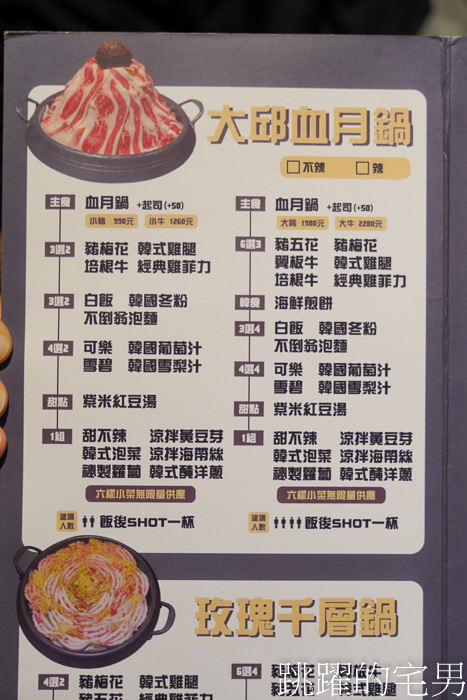 大邱血月鍋
不辣 辣
主食 血月鍋 +起司(+50)
小豬 990元 小牛 1260元
3選2 豬梅花 韓式雞腿
培根牛 經典雞菲力
3選2 白飯 韓國冬粉
不倒翁泡麵
4選2 可樂 韓國葡萄汁
雪碧 韓國雪梨汁
甜點 紫米紅豆湯
1組 甜不辣 涼拌黃豆芽
韓式泡菜 涼拌海帶絲
祕製蘿蔔 韓式醃洋蔥
六樣小菜無限量供應
建議人數 飯後SHOT一杯
主食 血月鍋 +起司(+50)
大豬 1980元 大牛 2280元
6選3 豬五花 豬梅花
翼板牛 韓式雞腿
培根牛 經典雞菲力
韓食 海鮮煎餅
3選4 白飯 韓國冬粉
不倒翁泡麵
4選4 可樂 韓國葡萄汁
雪碧 韓國雪梨汁
甜點 紫米紅豆湯
1組 甜不辣 涼拌黃豆芽
韓式泡菜 涼拌海帶絲
祕製蘿蔔 韓式醃洋蔥
六樣小菜無限量供應
建議人數 飯後SHOT一杯
玫瑰千層鍋
4選2 豬梅花 韓式雞腿
6選4
跳躍的宅男